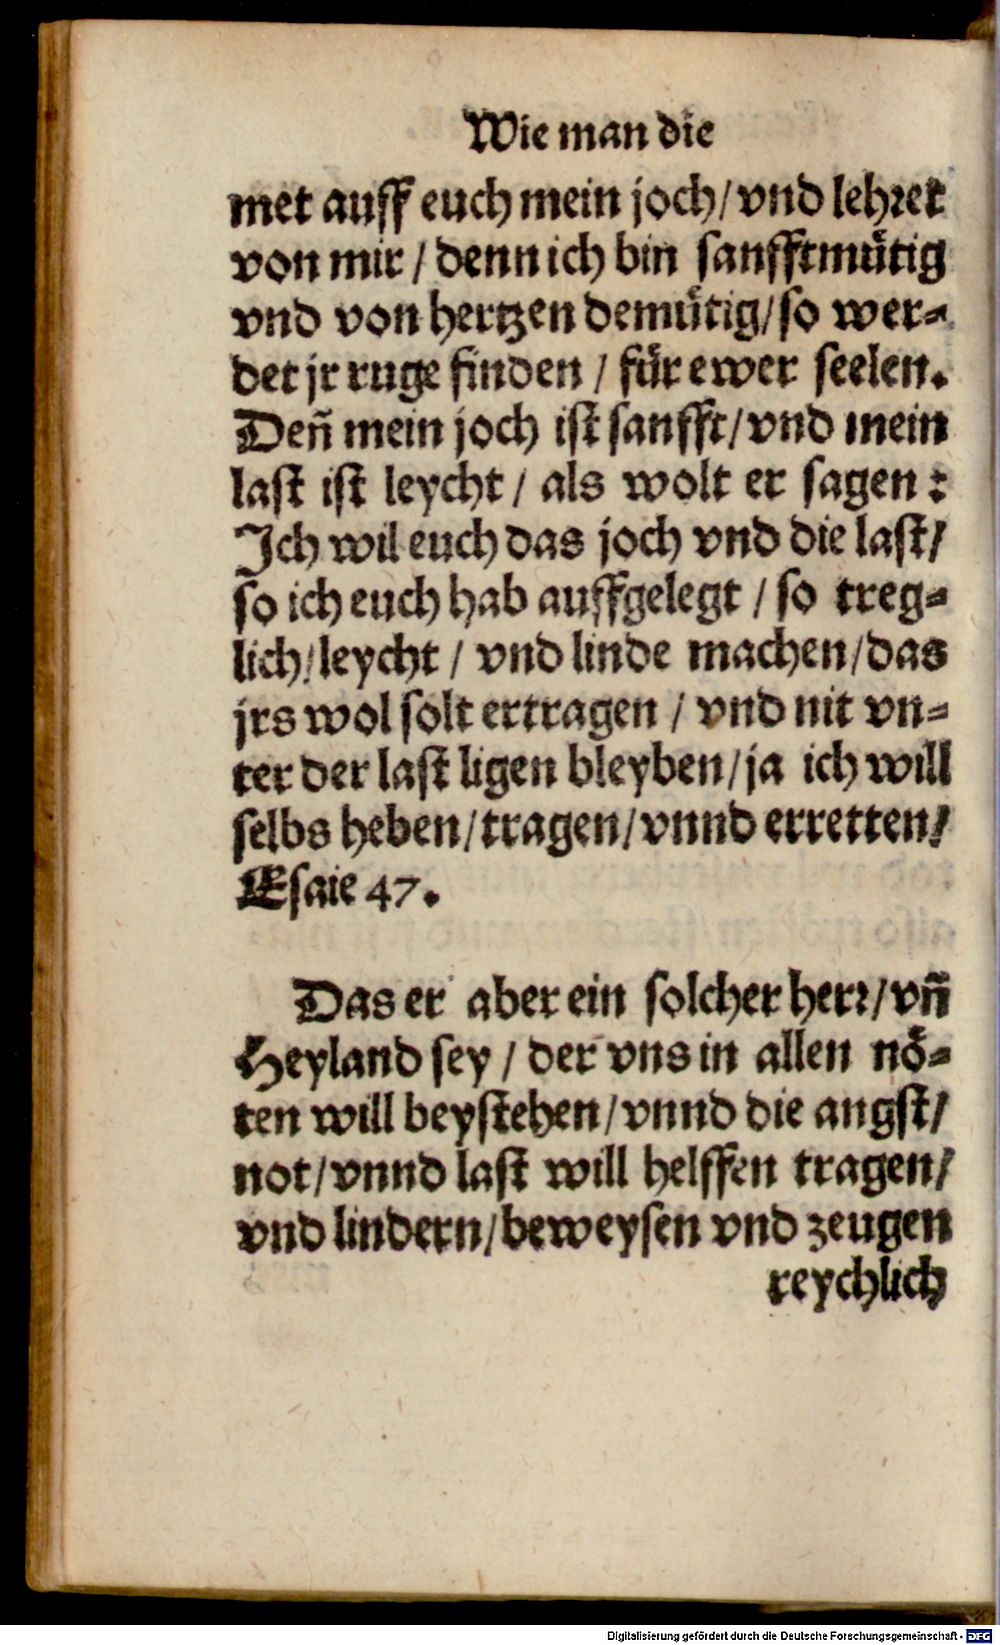 Wie man die
met auff euch mein joch/ vnd lehret
von mir / denn ich bin sanfftmuͤtig
vnd von hertzen demuͤtig/ so wer⸗
det jr ruge finden / fuͤr ewer seelen.
Deñ mein joch ist sanfft/ vnd mein
last ist leycht / als wolt er sagen :
Ich wil euch das joch vnd die last/
so ich euch hab auffgelegt / so treg⸗
lich/ leycht / vnd linde machen/ das
jrs wol solt ertragen / vnd nit vn⸗
ter der last ligen bleyben/ ja ich will
selbs heben/ tragen/ vnnd erretten/
Esaie 47.
Das er aber ein solcher herr/ vñ
Heyland sey / der vns in allen noͤ⸗
ten will beystehen/ vnnd die angst/
not/ vnnd last will helffen tragen/
vnd lindern/ beweysen vnd zeugen
reychlich
Digitalisierung gefördert durch die Deutsche Forschungsgemeinschaft - DFG